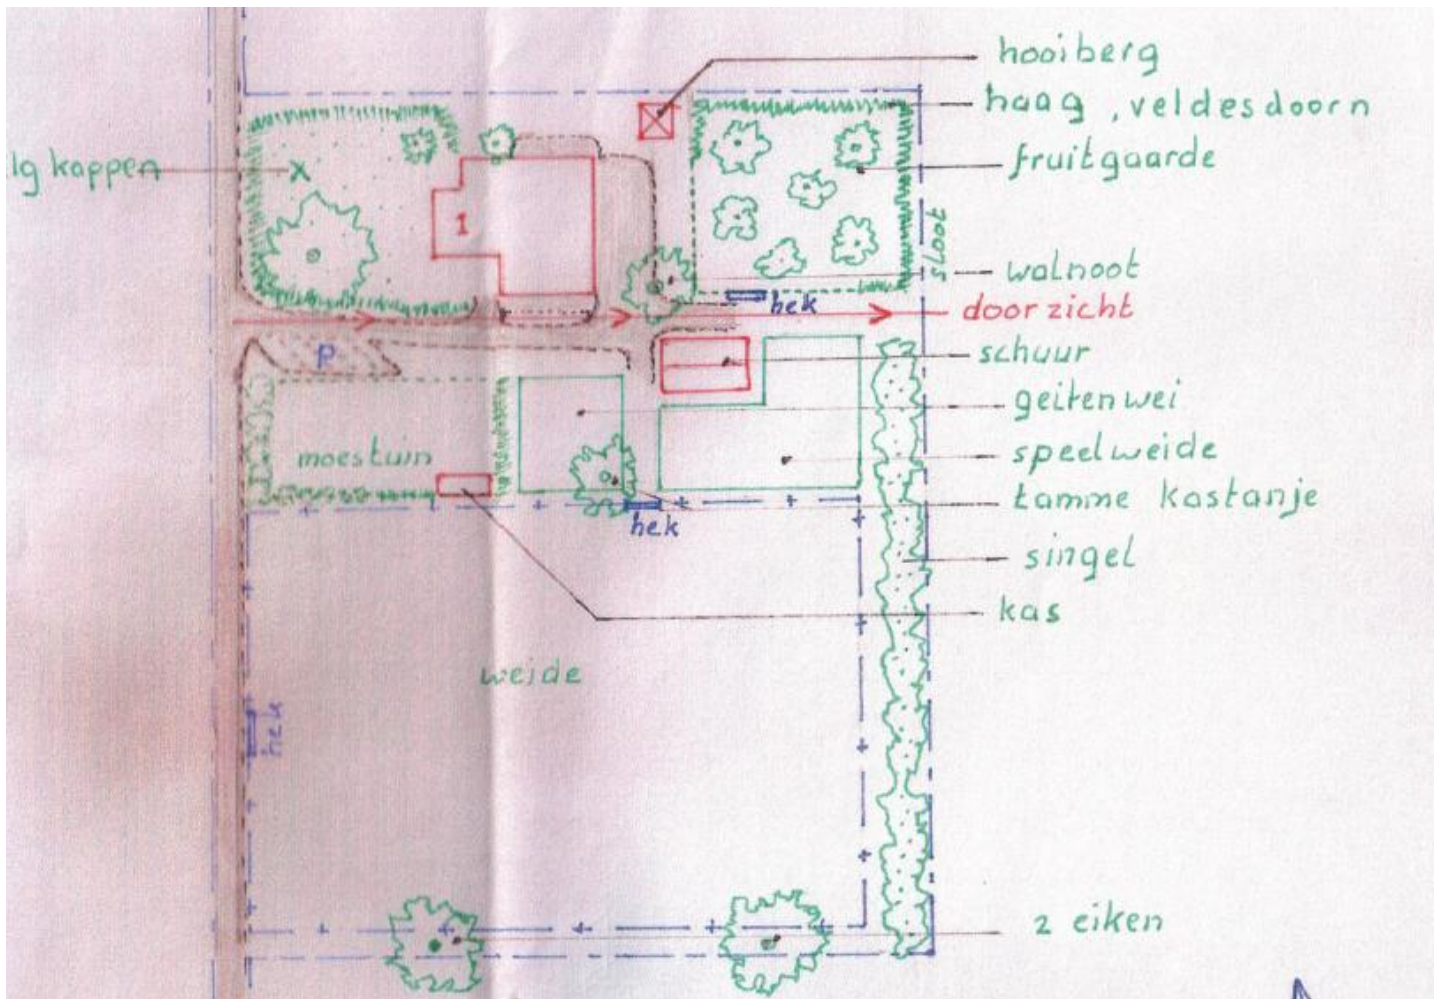 hooiberg
haag, veldesdoorn
lg kappen
fruitgaarde
1
sloot
walnoot
hek
doorzicht
P
schuur
geitenwei
moestuin
speelweide
tamme kastanje
hek
singel
kas
weide
hek
2 eiken